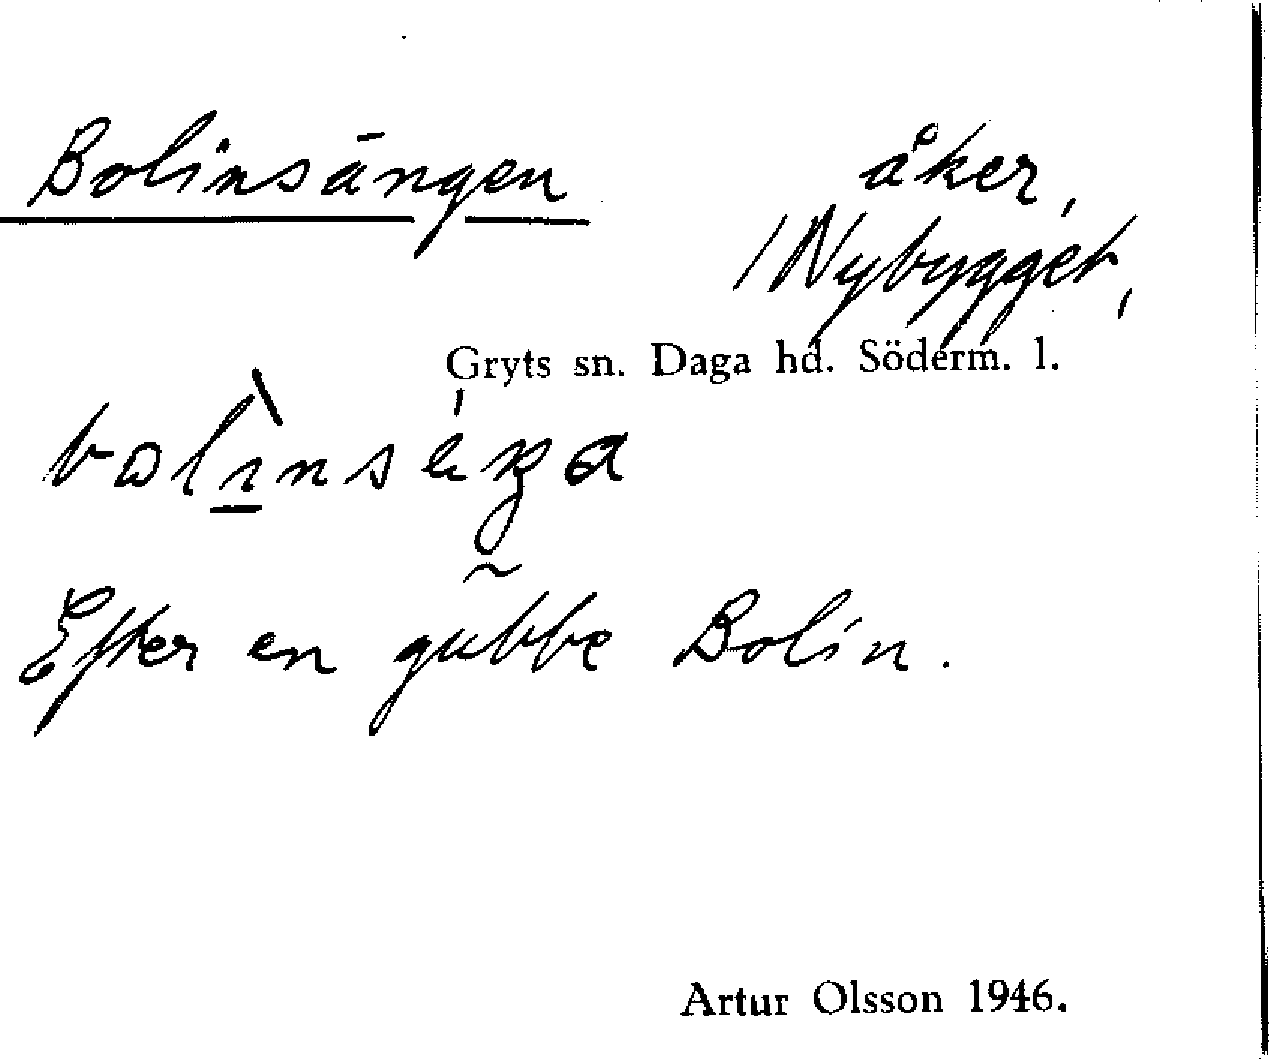 Bolinsängen åker,
/ Nybygget,
Gryts sn. Daga hd. Söderm. l.
Efter en gubbe Bolin.
Artur Olsson 1946.